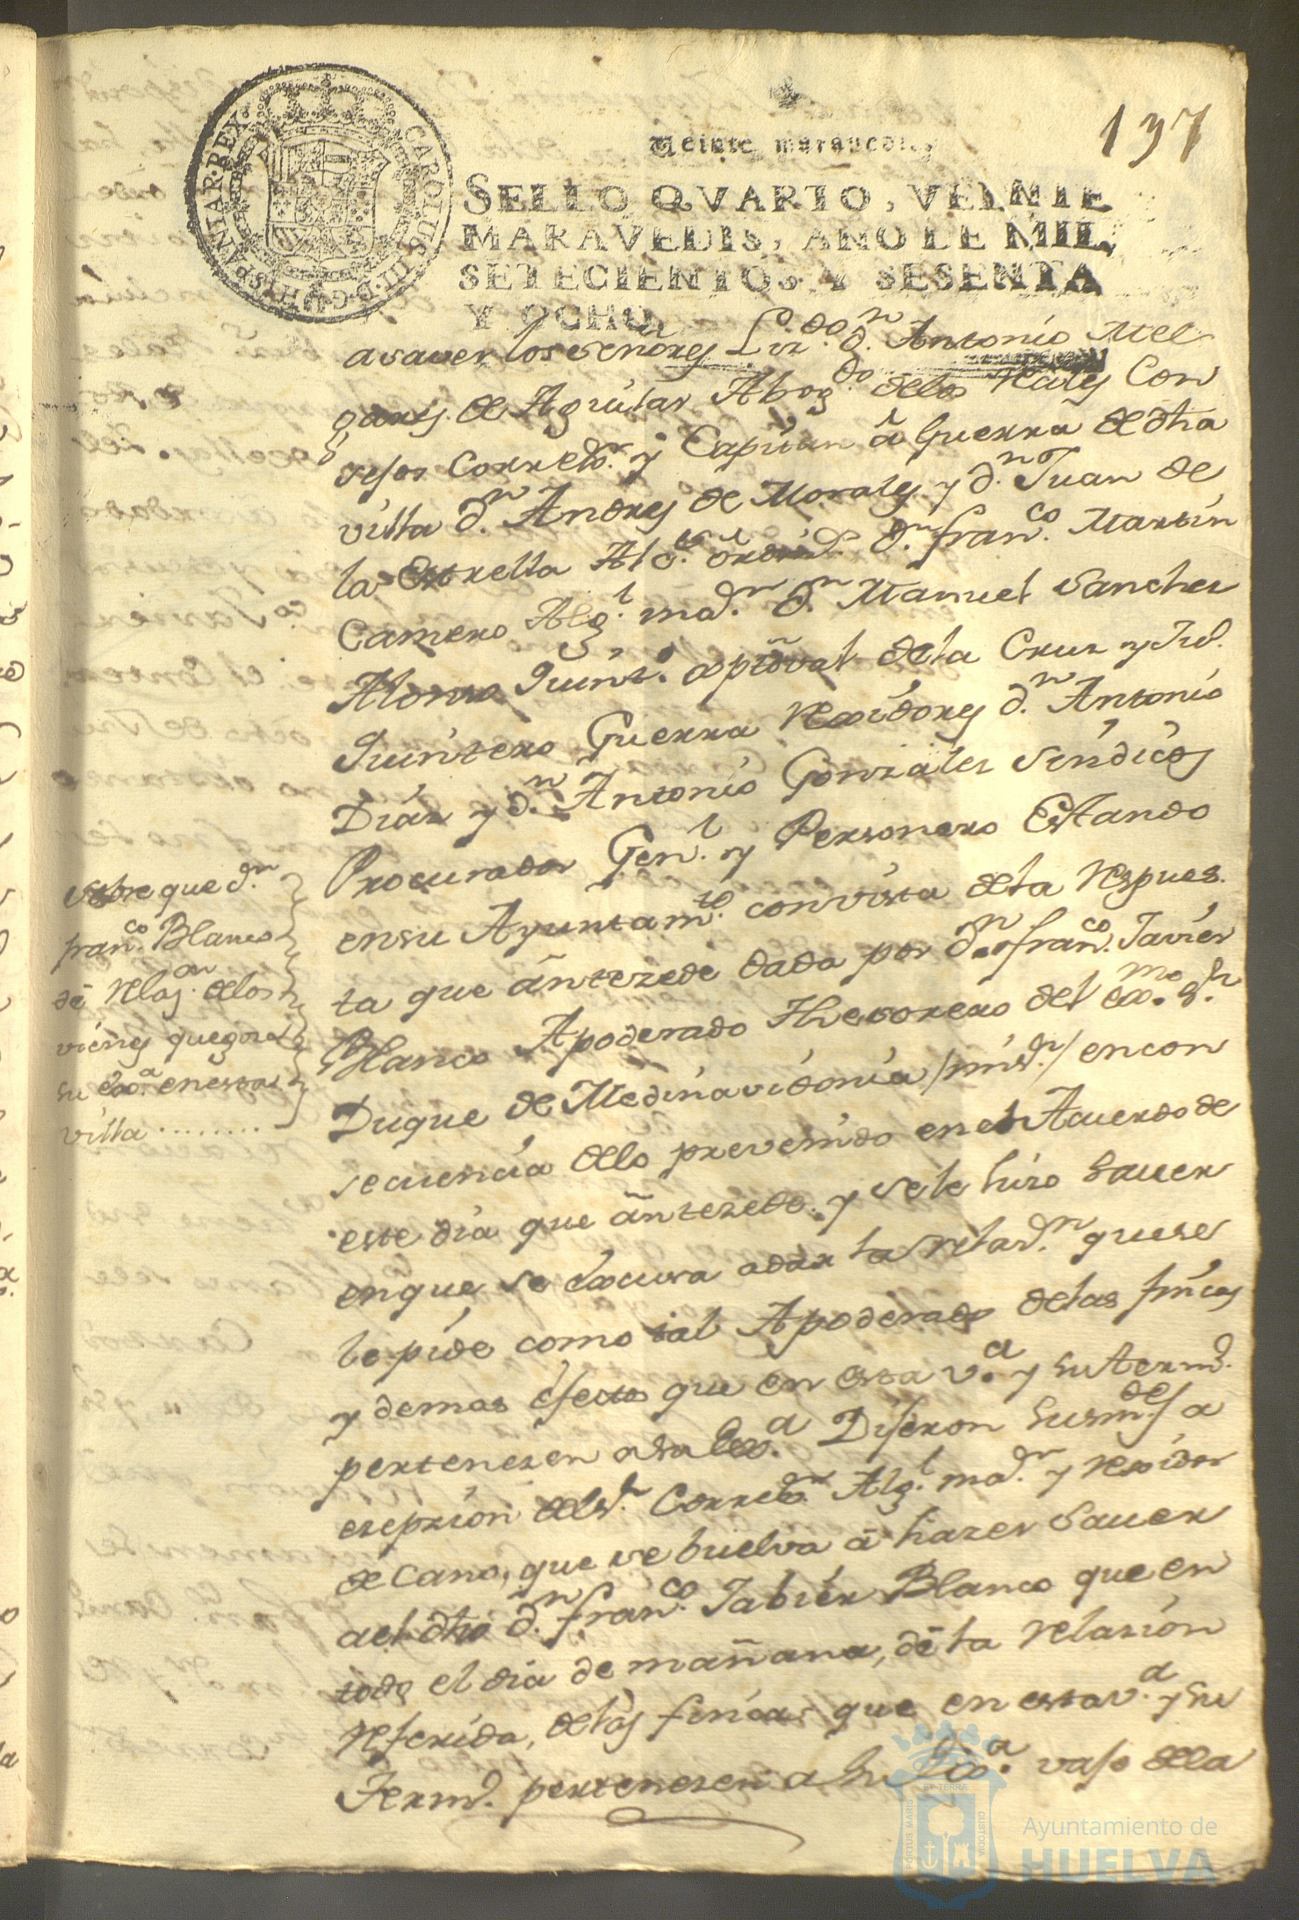 137
CAROLUS III D G HISPANIAR REX
Veinte maravedis
SELLO QVARTO, VEINTE
MARAVEDIS, AÑO DE MIL
SETECIENTOS Y SESENTA
Y OCHO.
a saver los Señores Liz.do d.n Antonio Mel
garej. de Aguilar Abog.do de los R.ales Con
sejos Corred.r y Capitan â Guerra de dha
villa d.n Andres de Morales y d.n Juan de
la Estrella Alc.es ôrdin. d.n fran.co Martin
Camero Alg.l ma.r d.n Manuel Sanches
Alonso Quint.o xptôval de la Cruz y
Quintero Guerra Rexidores d.n Antonio
Diaz y d.n Antonio Gonzales Sindicos
Procurador Gen.l y Personero Estando
en su Ayuntam.to con vista de la Respues
ta que ântezede dada por d.n fran.co Javier
Blanco Apoderado Thesorero del exmo. S.r
Duque de Medinasidonia /mi s.r/ en con
secuencia de lo prevenido en el Acuerdo de
este dia que ântezede, y se le hizo saver
en que se êxcusa a dar la relas.n que se
le pide como tal Apoderado de las fincas
y demas êfectos que en esta v.a y su term.
pertenesen a su Exx.a Dijeron sus m.des a
esepzion del S.r Corred.r Alg.l ma.r y rexidor
de Cano, que se buelva â hazer saver
a el dho d.n fran.co Jabier Blanco que en
todo el dia de mañana, dê la relasion
referida, de las fincas que en esta v.a y su
Term. pertenesen a su Exx.a vajo de la
Sobre que d.n
fran.co Blanco
dê relaz.on de los
vienes que goza
su êxx.a en esta
villa ........
PORTUS MARIS ET TERRAE CUSTODIA
Ayuntamiento de
HUELVA